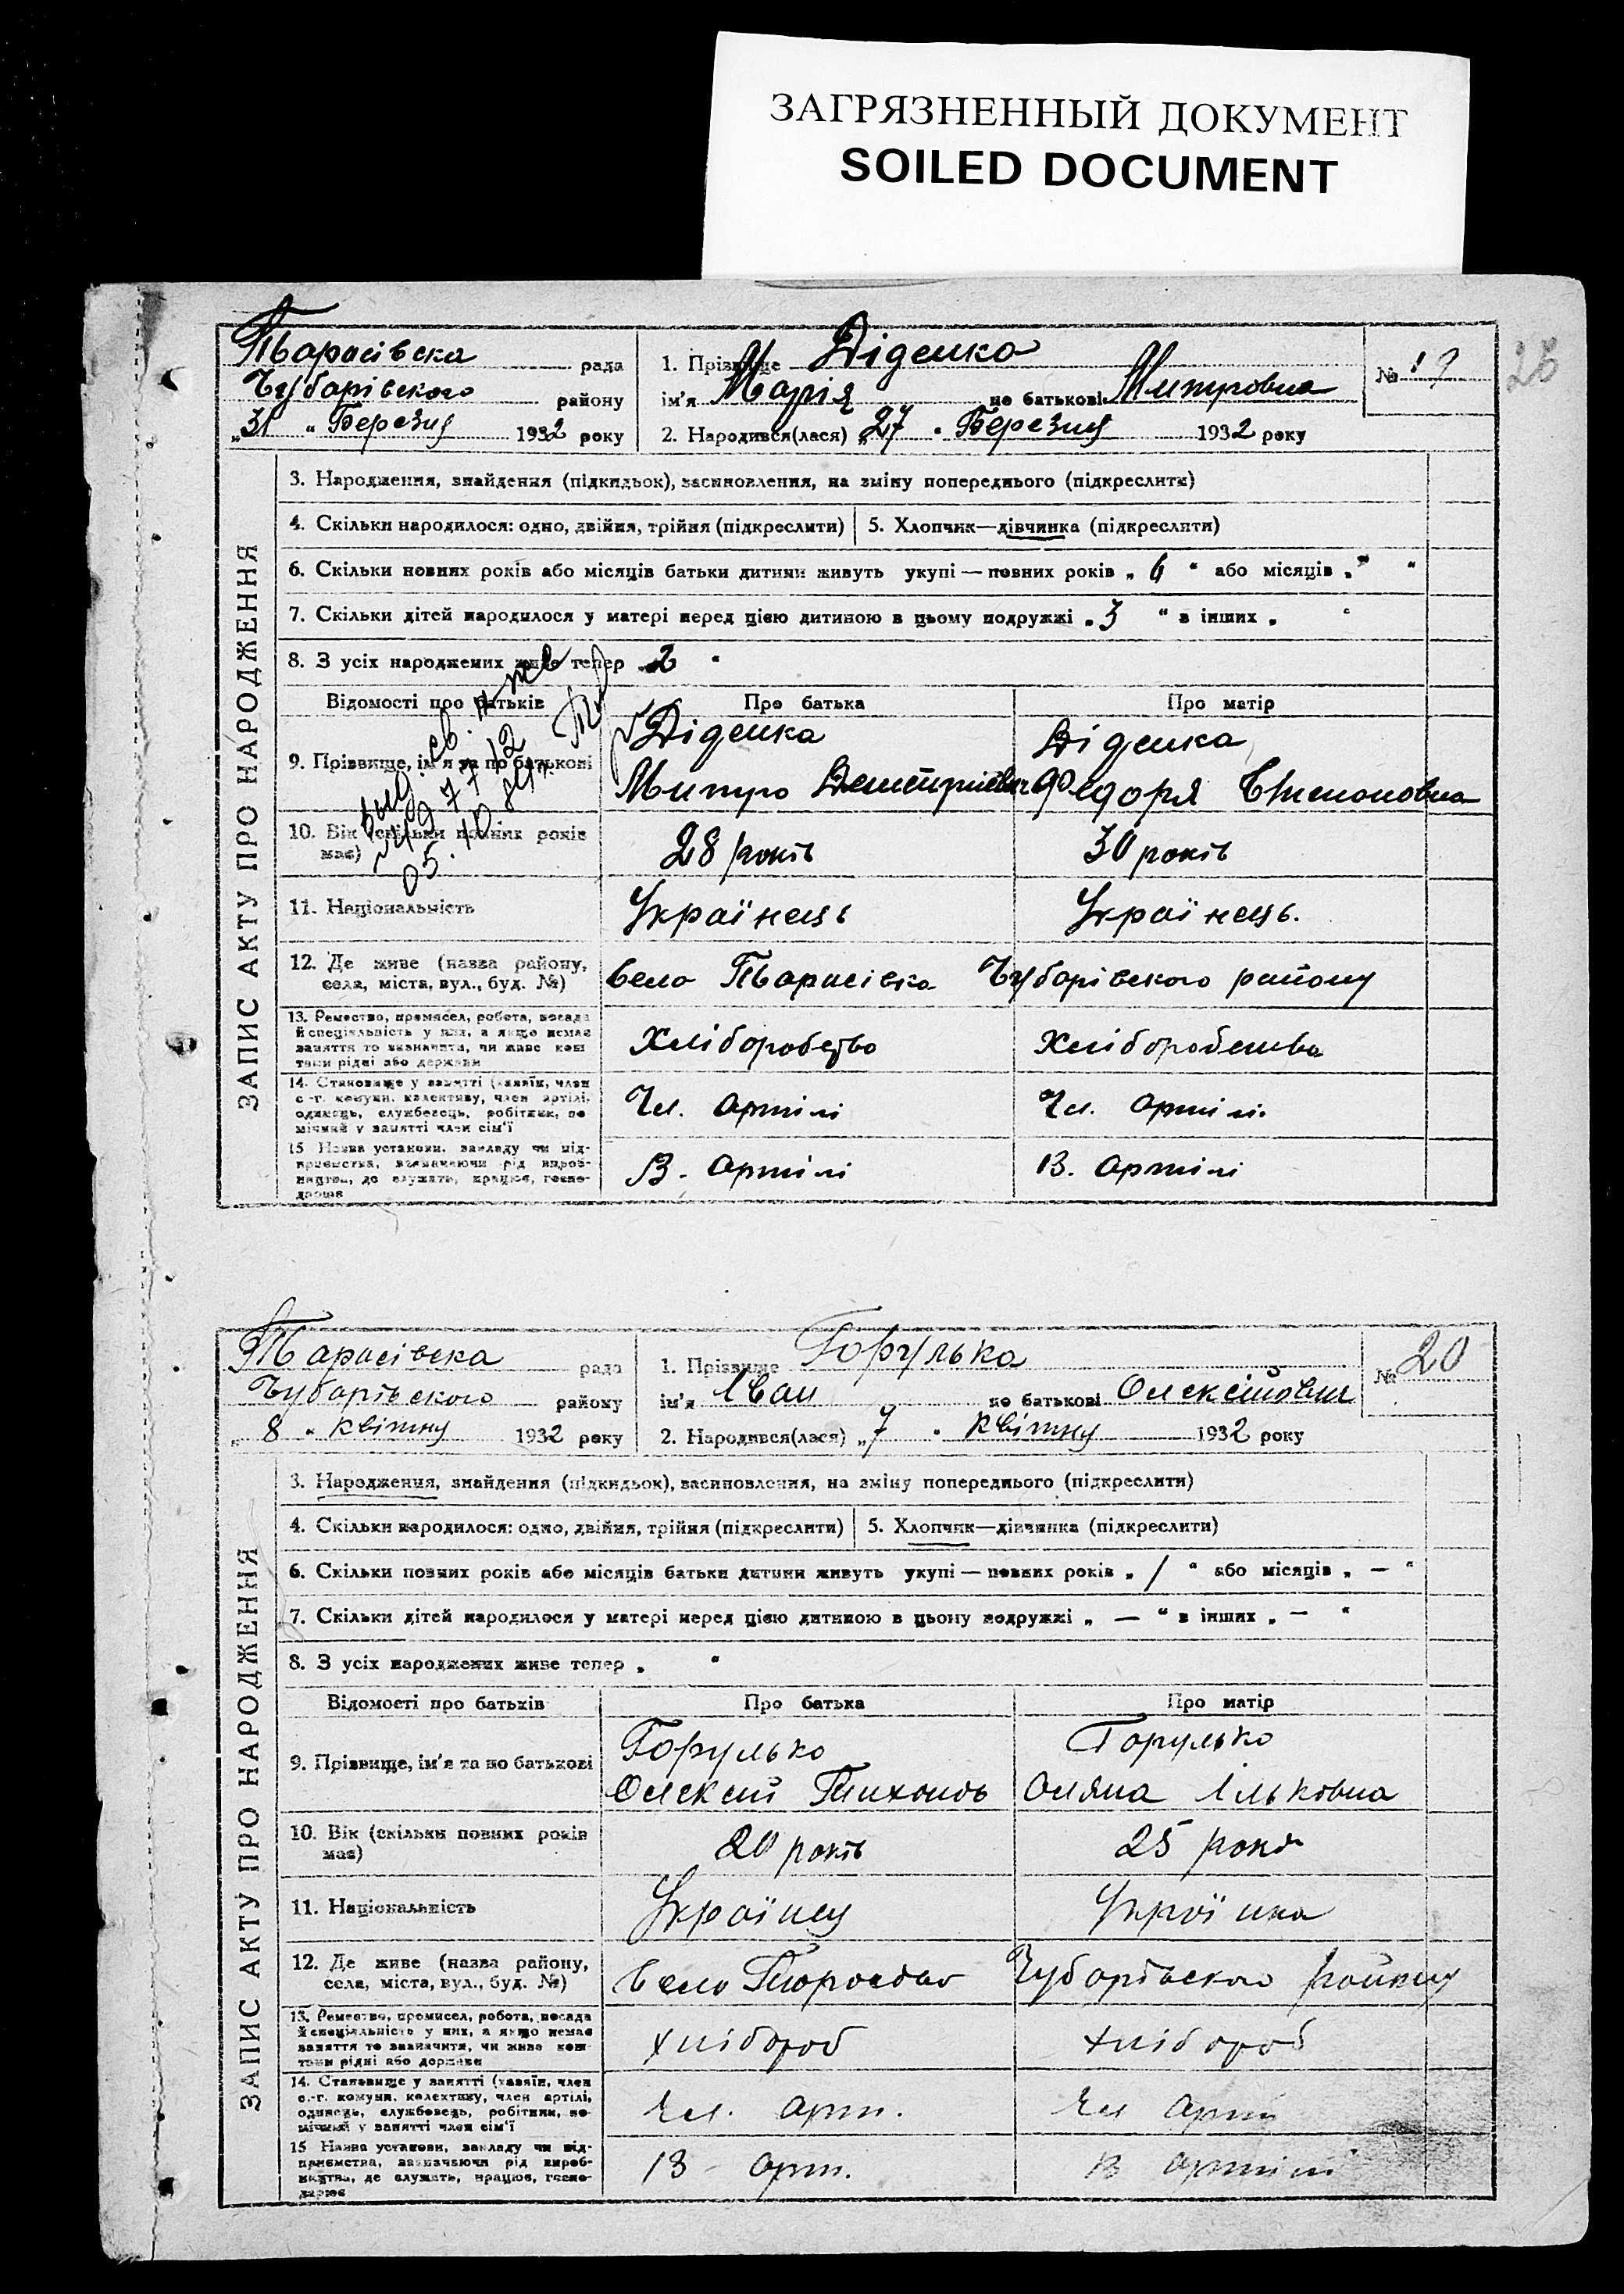 ЗАГРЯЗНЕННЫЙ ДОКУМЕНТ
SOILED DOCUMENT
26
Тарасівска рада
Чубарівского району
„31 “ Березня 1932 року
1. Прізвище Діденко
ім'я Марія по батькові Митровна
2. Народився(лася) „27 “ Березня 1932 року
№ 19
ЗАПИС АКТУ ПРО НАРОДЖЕННЯ
3. Народження, знайдення (підкидьок), засиновлення, на зміну попереднього (підкреслити)
4. Скільки народилося: одно, двійня, трійня (підкреслити) 5. Хлопчик—дівчинка (підкреслити)
6. Скільки повних років або місяців батьки дитини живуть укупі — повних років „ 6 “ або місяців „ “
7. Скільки дітей народилося у матері перед цією дитиною в цьому подружжі „ 3 “ в інших „ “
8. З усіх народжених живе тепер „ 2 “
Відомості про батьків Про батька Про матір
9. Прізвище, ім'я та по батькові
Діденка Діденка
Митро Федоря
10. Вік (скільки повних років має) 28 років 30 років
11. Національність Українець Українець.
12. Де живе (назва району, села, міста, вул., буд. №) Село Тарасівка Чубарівского району
13. Ремество, промисел, робота, посада й спеціяльність у них, а якщо немає заняття то визначити, чи живе коштами рідні або держави
Хліборобство Хліборобства
14. Становище у занятті (хазяїн, член с.-г. комуни, колективу, член артілі, одинець, службовець, робітник, помічний у занятті член сім'ї
Чл. артілі Чл. артілі
15. Назва установи, закладу чи підприємства, зазначаючи рід виробництва, де служить, працює, господарює
В. артілі В. артілі
Тарасівска рада
Чубарівского району
„ 8 “ квітну 1932 року
1. Прізвище Горулька
ім'я Іван по батькові Олексійович
2. Народився(лася) „7 “ Квітну 1932 року
№ 20
ЗАПИС АКТУ ПРО НАРОДЖЕННЯ
3. Народження, знайдення (підкидьок), засиновлення, на зміну попереднього (підкреслити)
4. Скільки народилося: одно, двійня, трійня (підкреслити) 5. Хлопчик—дівчинка (підкреслити)
6. Скільки повних років або місяців батьки дитини живуть укупі — повних років „ 1 “ або місяців „ — “
7. Скільки дітей народилося у матері перед цією дитиною в цьому подружжі „ — “ в інших „ — “
8. З усіх народжених живе тепер „ “
Відомості про батьків Про батька Про матір
9. Прізвище, ім'я та по батькові
Горулько Горулько
Олексій Тихонов Оляна Ільковна
10. Вік (скільки повних років має) 20 років 25 років
11. Національність Українец Українка
12. Де живе (назва району, села, міста, вул., буд. №) Село Чубарівского району
13. Ремество, промисел, робота, посада й спеціяльність у них, а якщо немає заняття то визначити, чи живе коштами рідні або держави
хлібороб хлібороб
14. Становище у занятті (хазяїн, член с.-г. комуни, колективу, член артілі, одинець, службовець, робітник, помічний у занятті член сім'ї
Чл. арт. Чл арт
15. Назва установи, закладу чи підприємства, зазначаючи рід виробництва, де служить, працює, господарює
В арт. В артілі